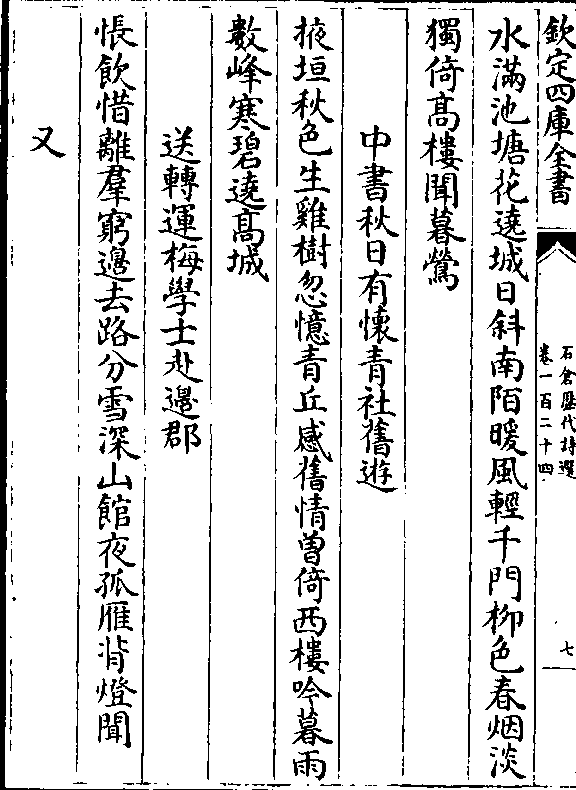 欽定四庫全書
石倉歴代詩選
卷一百二十四
七
水滿池塘花遶城日斜南陌暖風輕千門柳色春烟淡
獨倚髙樓聞暮鶯
中書秋日有懷青社舊遊
掖垣秋色生雞樹忽憶青丘感舊情曽倚西樓吟暮雨
數峰寒碧遶髙城
送轉運梅學士赴邉郡
悵飲惜離羣窮邉去路分雪深山館夜孤雁背燈聞
又